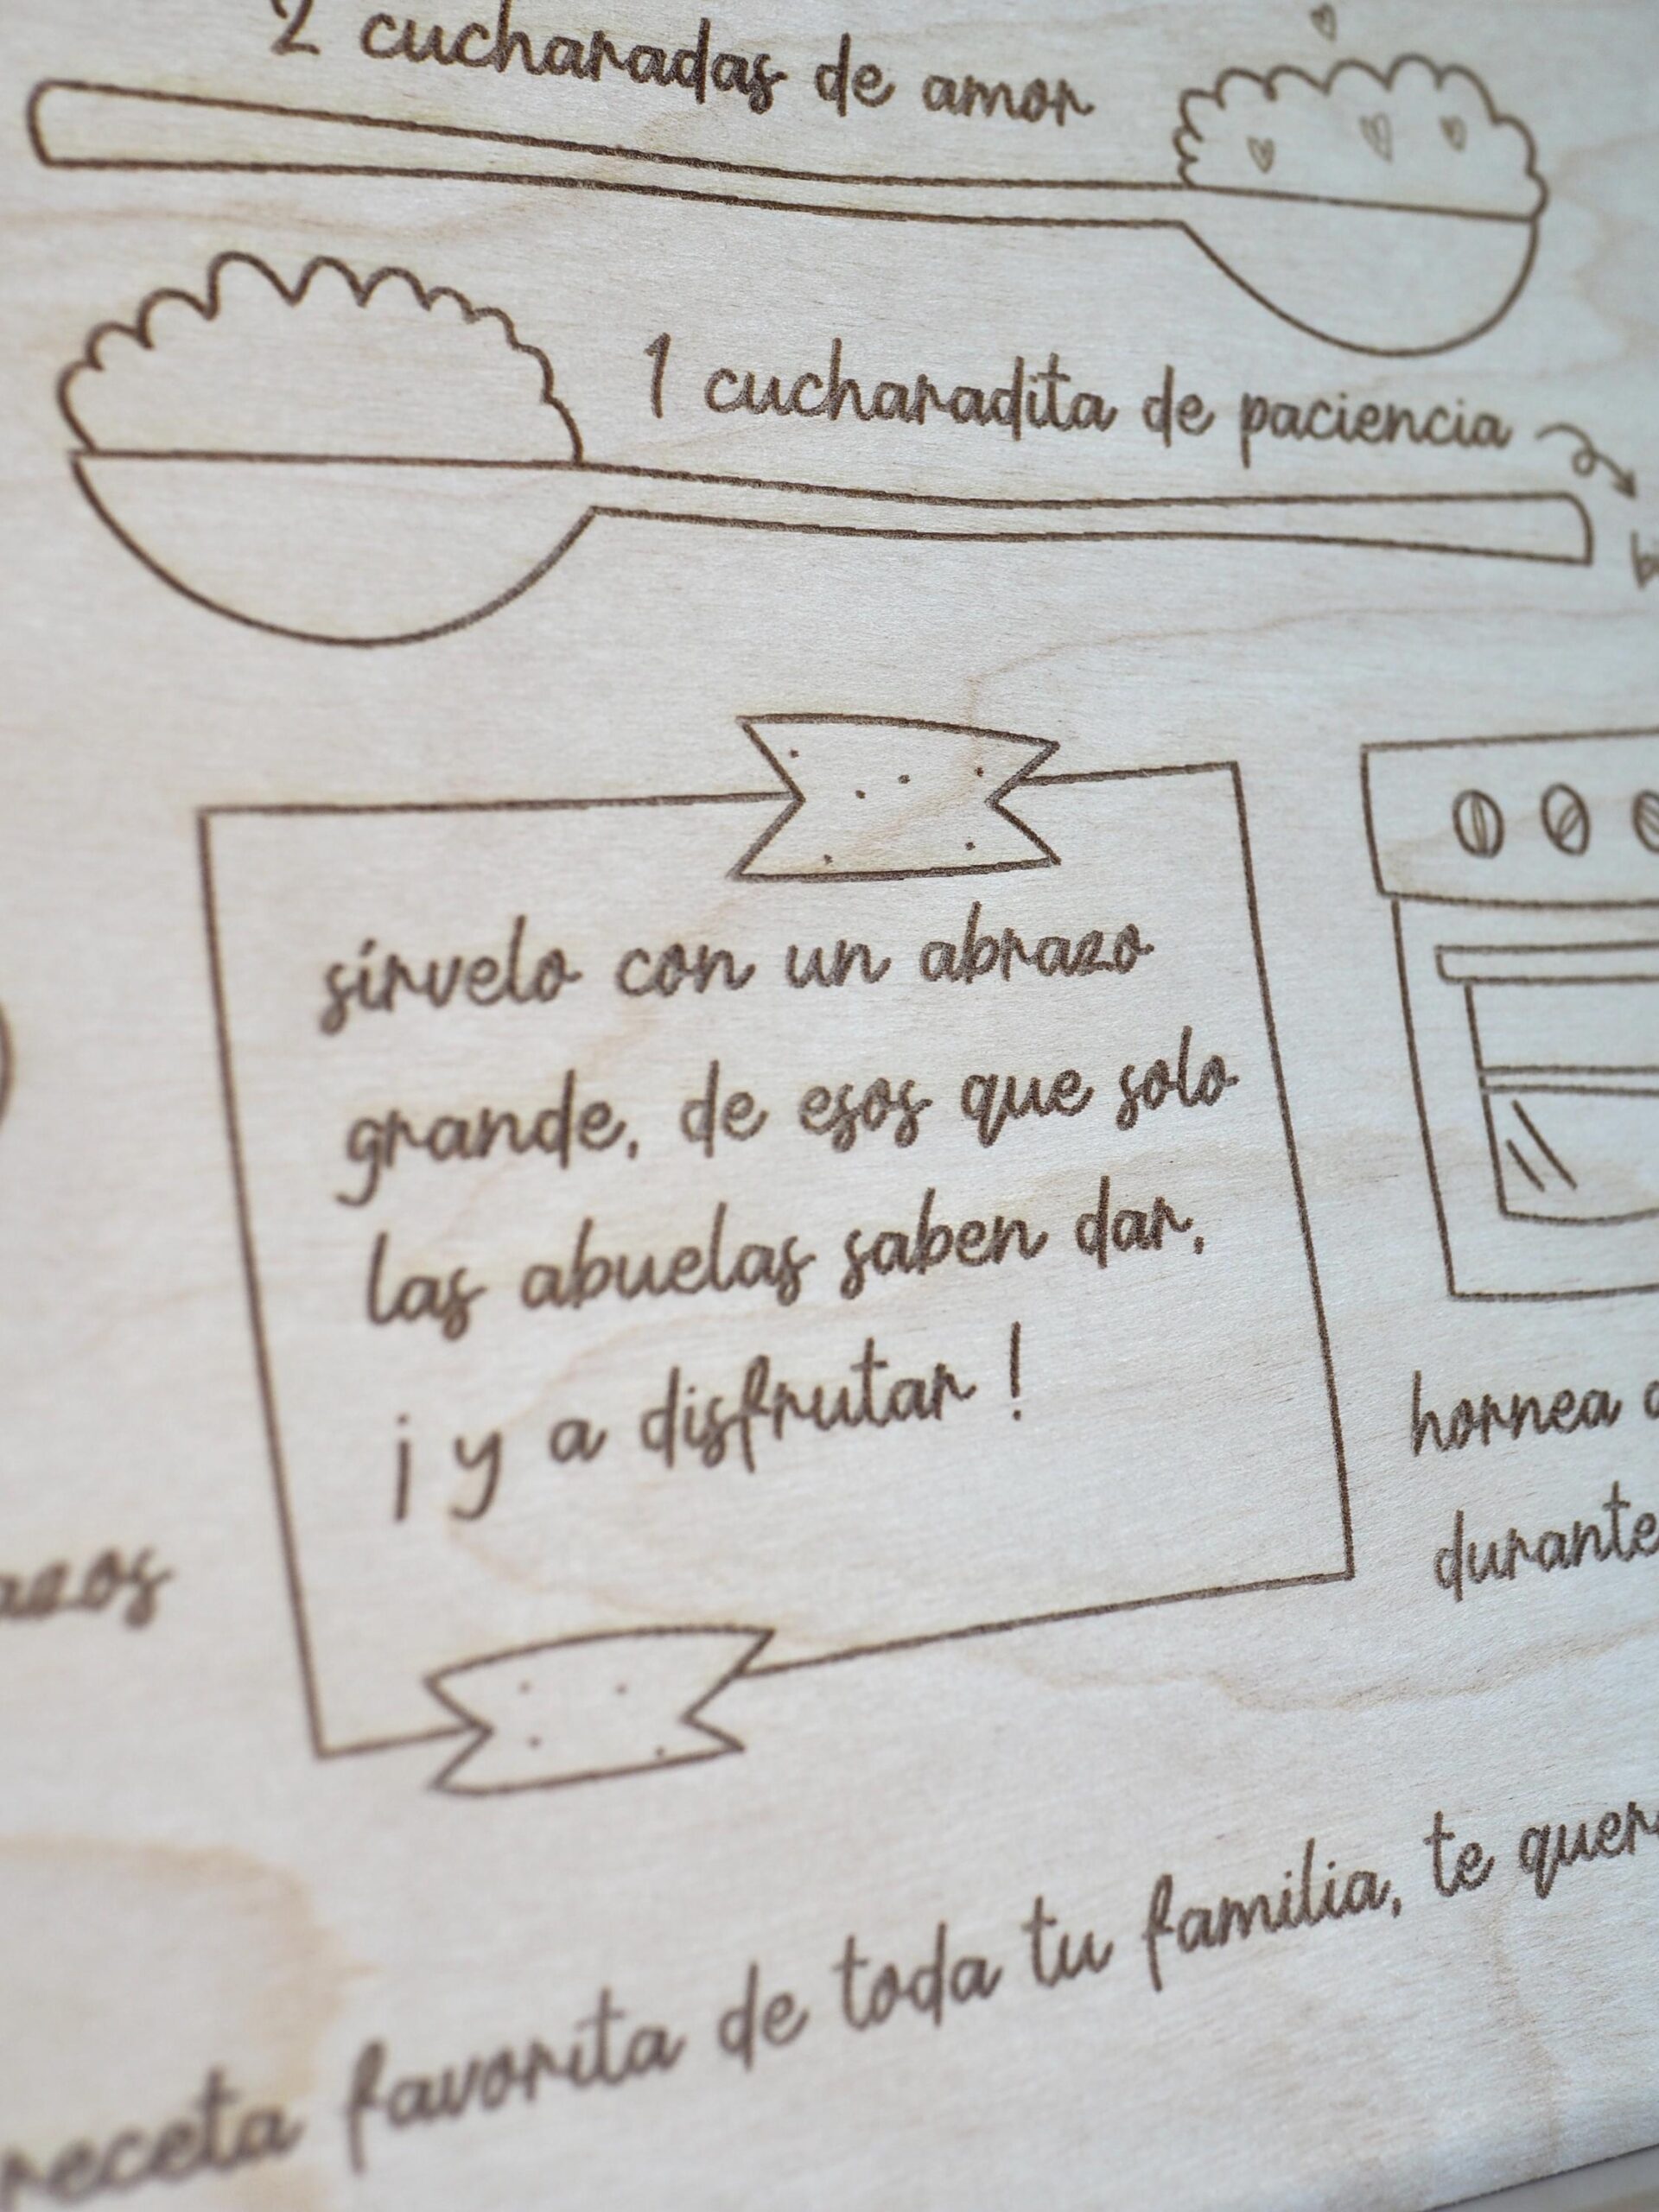 2 cucharadas de amor
1 cucharadita de paciencia
sírvelo con un abrazo
grande, de esos que solo
las abuelas saben dar,
¡ y a disfrutar !
hornea
durante
receta favorita de toda tu familia, te